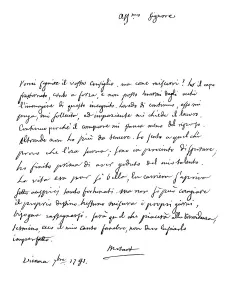 Aff.mo Signore
Vorrei seguire il vostro consiglio, ma come riuscirvi? ho il capo
frastornato, conto a forza, e non posso levarmi dagli occhi
l'immagine di questo incognito. Lo vedo di continuo, esso mi
prega, mi sollecita, ed impaziente mi chiede il lavoro.
Continuo perchè il comporre mi stanca meno del riposo.
Altronde non ho più da tremare. Lo sento a quel che
provo che l'ora suona; sono in procinto di spirare;
ho finito prima di aver goduto del mio talento.
La vita era pur sì bella, la carriera s'apriva
sotto auspici tanto fortunati, ma non si può cangiare
il proprio destino. Nessuno misura i propri giorni,
bisogna rassegnarsi, sarà quel che piacerà alla provvidenza,
termino, ecco il mio canto funebre, non devo lasciarlo
imperfetto.
Vienna 7bre 1791. Mozart